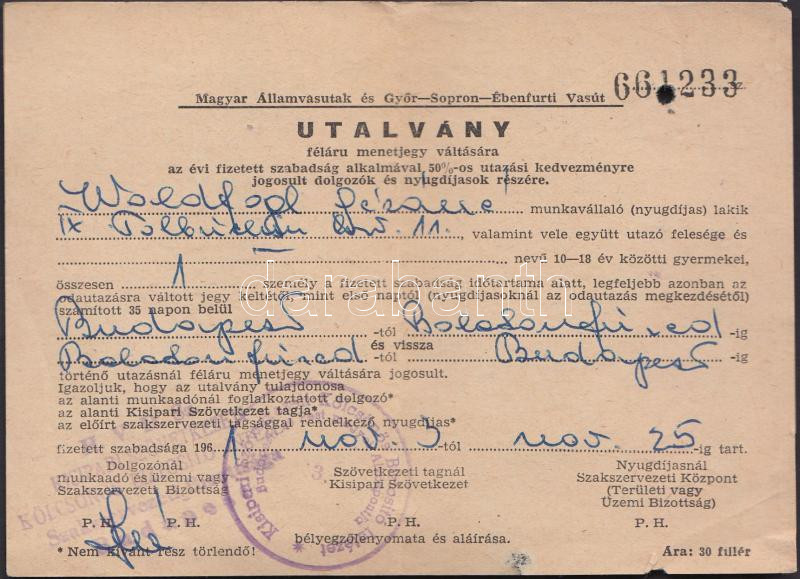 Magyar Államvasutak és Győr—Sopron—Ébenfurti Vasút
661233
UTALVÁNY
féláru menetjegy váltására
az évi fizetett szabadság alkalmával 50%-os utazási kedvezményre
jogosult dolgozók és nyugdíjasok részére.
Waldfogl Gézáné munkavállaló (nyugdíjas) lakik
IX 11. , valamint vele együtt utazó felesége és
nevű 10—18 év közötti gyermekei,
összesen 1 személy a fizetett szabadság időtartama alatt, legfeljebb azonban az
odautazásra váltott jegy keltétől, mint első naptól (nyugdíjasoknál az odautazás megkezdésétől)
számított 35 napon belül
Budapest -tól Balatonfüred -ig
és vissza
Balatonfüred -tól Budapest -ig
történő utazásnál féláru menetjegy váltására jogosult.
Igazoljuk, hogy az utalvány tulajdonosa
az alanti munkaadónál foglalkoztatott dolgozó*
az alanti Kisipari Szövetkezet tagja*
az előírt szakszervezeti tagsággal rendelkező nyugdíjas*
fizetett szabadsága 196 1 nov. 5 -tól nov. 25 -ig tart.
Dolgozónál
munkaadó és üzemi vagy
Szakszervezeti Bizottság
Szövetkezeti tagnál
Kisipari Szövetkezet
Nyugdíjasnál
Szakszervezeti Központ
(Területi vagy
Üzemi Bizottság)
P. H. P. H. P. H. P. H.
bélyegzőlenyomata és aláírása.
* Nem kívánt rész törlendő!
Ára: 30 fillér
darabanth